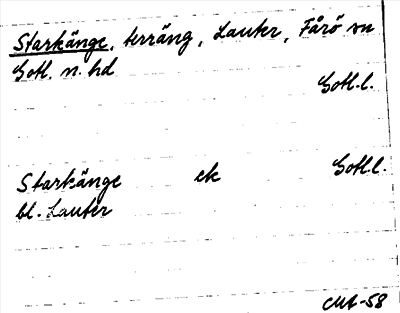 Starkänge, terräng, Lauter, Fårö sn
Gotl. n. hd
Gotl. l.
Starkänge ek Gotl. l.
bl. Lauter
CMA-58